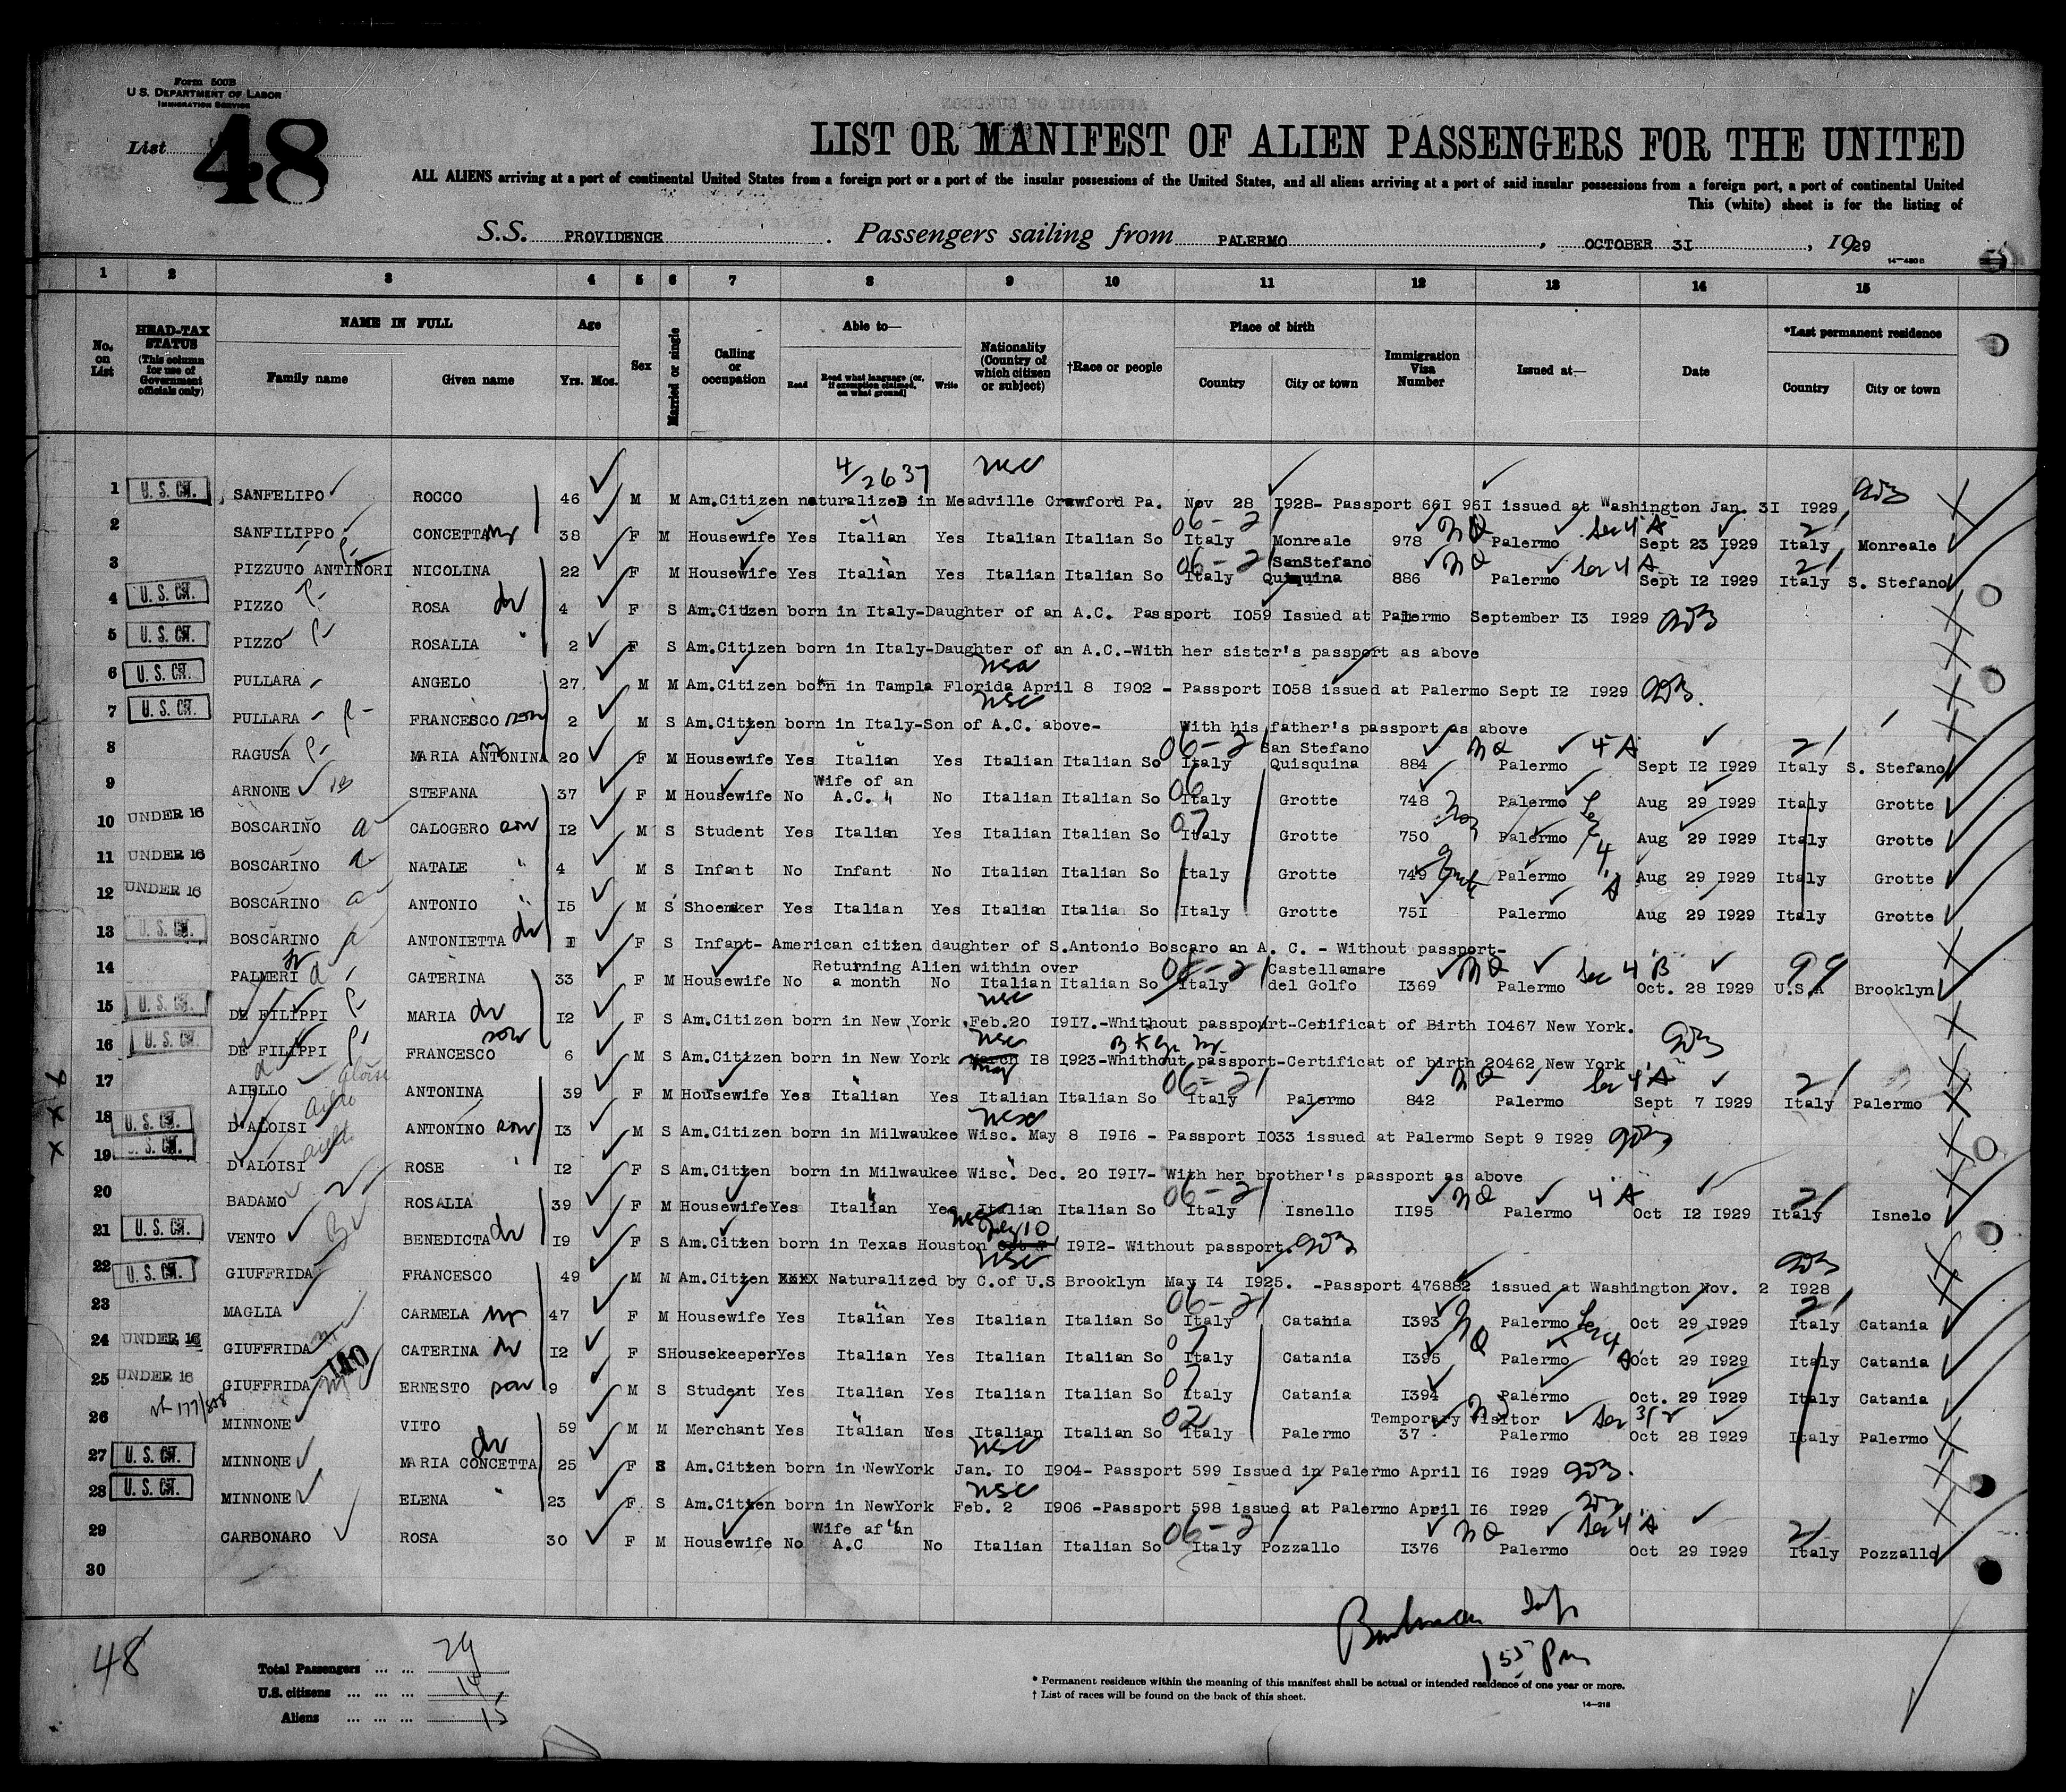 Form 500B
U. S. DEPARTMENT OF LABOR
IMMIGRATION SERVICE
List 48
LIST OR MANIFEST OF ALIEN PASSENGERS FOR THE UNITED
ALL ALIENS arriving at a port of continental United States from a foreign port or a port of the insular possessions of the United States, and all aliens arriving at a port of said insular possessions from a foreign port, a port of continental United
This (white) sheet is for the listing of
S.S. PROVIDENCE . Passengers sailing from PALERMO , OCTOBER 3I , 1929
14-480 B
1 2 3 4 5 6 7 8 9 10 11 12 13 14 15
No. on List
HEAD-TAX STATUS (This column for use of Government officials only)
NAME IN FULL
Family name Given name
Age
Yrs. Mos.
Sex
Married or single
Calling or occupation
Able to—
Read Read what language (or, if exemption claimed, on what ground) Write
Nationality (Country of which citizen or subject)
†Race or people
Place of birth
Country City or town
Immigration Visa Number
Issued at—
Date
*Last permanent residence
Country City or town
4/2637
1 U. S. CIT. SANFELIPO ROCCO 46 M M Am.Citizen naturalizeD in Meadville Crawford Pa. Nov 28 I928- Passport 66I 96I issued at Washington Jan. 3I I929
06-2
2 SANFILIPPO CONCETTA 38 F M Housewife Yes Italian Yes Italian Italian So Italy Monreale 978 Palermo Sept 23 I929 Italy Monreale
06-2
3 PIZZUTO ANTINORI NICOLINA 22 F M Housewife Yes Italian Yes Italian Italian So Italy SanStefano Quisquina 886 Palermo Sept I2 I929 Italy S. Stefano
4 U. S. CIT. PIZZO ROSA 4 F S Am.Citizen born in Italy-Daughter of an A.C. Passport I059 Issued at Palermo September I3 I929
5 U. S. CIT. PIZZO ROSALIA 2 F S Am.Citizen born in Italy-Daughter of an A.C.-With her sister's passport as above
6 U. S. CIT. PULLARA ANGELO 27 M M Am.Citizen born in Tampla Florida April 8 I902 - Passport I058 issued at Palermo Sept I2 I929
7 U. S. CIT. PULLARA FRANCESCO son 2 M S Am.Citizen born in Italy-Son of A.C. above- With his father's passport as above
06-2
8 RAGUSA MARIA ANTONINA 20 F M Housewife Yes Italian Yes Italian Italian So Italy San Stefano Quisquina 884 Palermo Sept I2 I929 Italy S. Stefano
9 ARNONE STEFANA 37 F M Housewife No Wife of an A.C. No Italian Italian So Italy Grotte 748 Palermo Aug 29 I929 Italy Grotte
10 UNDER 16 BOSCARINO CALOGERO son I2 M S Student Yes Italian Yes Italian Italian So Italy Grotte 750 Palermo Aug 29 I929 Italy Grotte
11 UNDER 16 BOSCARINO NATALE " 4 M S Infant No Infant No Italian Italian So Italy Grotte 749 Palermo Aug 29 I929 Italy Grotte
12 UNDER 16 BOSCARINO ANTONIO " I5 M S Shoemker Yes Italian Yes Italian Italia So Italy Grotte 75I Palermo Aug 29 I929 Italy Grotte
13 U. S. CIT. BOSCARINO ANTONIETTA I F S Infant- American citizen daughter of S.Antonio Boscaro an A. C. - Without passport-
14 PALMERI CATERINA 33 F M Housewife No Returning Alien within over a month No Italian Italian So Italy Castellamare del Golfo I369 Palermo Sec 4 B Oct. 28 I929 U.S.A Brooklyn
99
15 U. S. CIT. DE FILIPPI MARIA I2 F S Am.Citizen born in New York Feb.20 I9I7.-Whithout passport-Cetificat of Birth I0467 New York.
16 U. S. CIT. DE FILIPPI FRANCESCO son 6 M S Am.Citizen born in New York March May I8 I923-Whithout passport-Certificat of birth 20462 New York
06-2
17 AIELLO ANTONINA 39 F M Housewife Yes Italian Yes Italian Italian So Italy Palermo 842 Palermo Sept 7 I929 Italy Palermo
18 U. S. CIT. D'ALOISI ANTONINO son I3 M S Am.Citizen born in Milwaukee Wisc. May 8 I9I6 - Passport I033 issued at Palermo Sept 9 I929
19 U. S. CIT. D'ALOISI ROSE I2 F S Am.Citizen born in Milwaukee Wisc. Dec. 20 I9I7- With her brother's passport as above
06-2
20 BADAMO ROSALIA 39 F M Housewife Yes Italian Yes Italian Italian So Italy Isnello II95 Palermo 4 A Oct I2 I929 Italy Isnelo
21 U. S. CIT. VENTO BENEDICTA I9 F S Am.Citizen born in Texas Houston I9I2- Without passport.
22 U. S. CIT. GIUFFRIDA FRANCESCO 49 M M Am.Citizen XXXX Naturalized by C.of U.S Brooklyn May I4 I925. -Passport 476882 issued at Washington Nov. 2 I928
06-2
23 MAGLIA CARMELA 47 F M Housewife Yes Italian Yes Italian Italian So Italy Catania I393 Palermo Oct 29 I929 Italy Catania
24 UNDER 16 GIUFFRIDA CATERINA I2 F S Housekeeper Yes Italian Yes Italian Italian So Italy Catania I395 Palermo Oct 29 I929 Italy Catania
25 UNDER 16 GIUFFRIDA ERNESTO son 9 M S Student Yes Italian Yes Italian Italian So Italy Catania I394 Palermo Oct. 29 I929 Italy Catania
26 MINNONE VITO 59 M M Merchant Yes Italian Yes Italian Italian So Italy Palermo Temporary Visitor 37 Palermo Oct 28 I929 Italy Palermo
27 U. S. CIT. MINNONE MARIA CONCETTA 25 F S Am.Citizen born in NewYork Jan. I0 I904- Passport 599 Issued in Palermo April I6 I929
28 U. S. CIT. MINNONE ELENA " 23 F S Am.Citizen born in NewYork Feb. 2 I906 -Passport 598 issued at Palermo April I6 I929
06-2
29 CARBONARO ROSA 30 F M Housewife No Wife af an A.C No Italian Italian So Italy Pozzallo I376 Palermo Oct 29 I929 Italy Pozzallo
30
48
Total Passengers ... ... 29
U.S. citizens ... ... ... 14
Aliens ... ... ... 15
1 55 Pm
* Permanent residence within the meaning of this manifest shall be actual or intended residence of one year or more.
† List of races will be found on the back of this sheet.
14-218